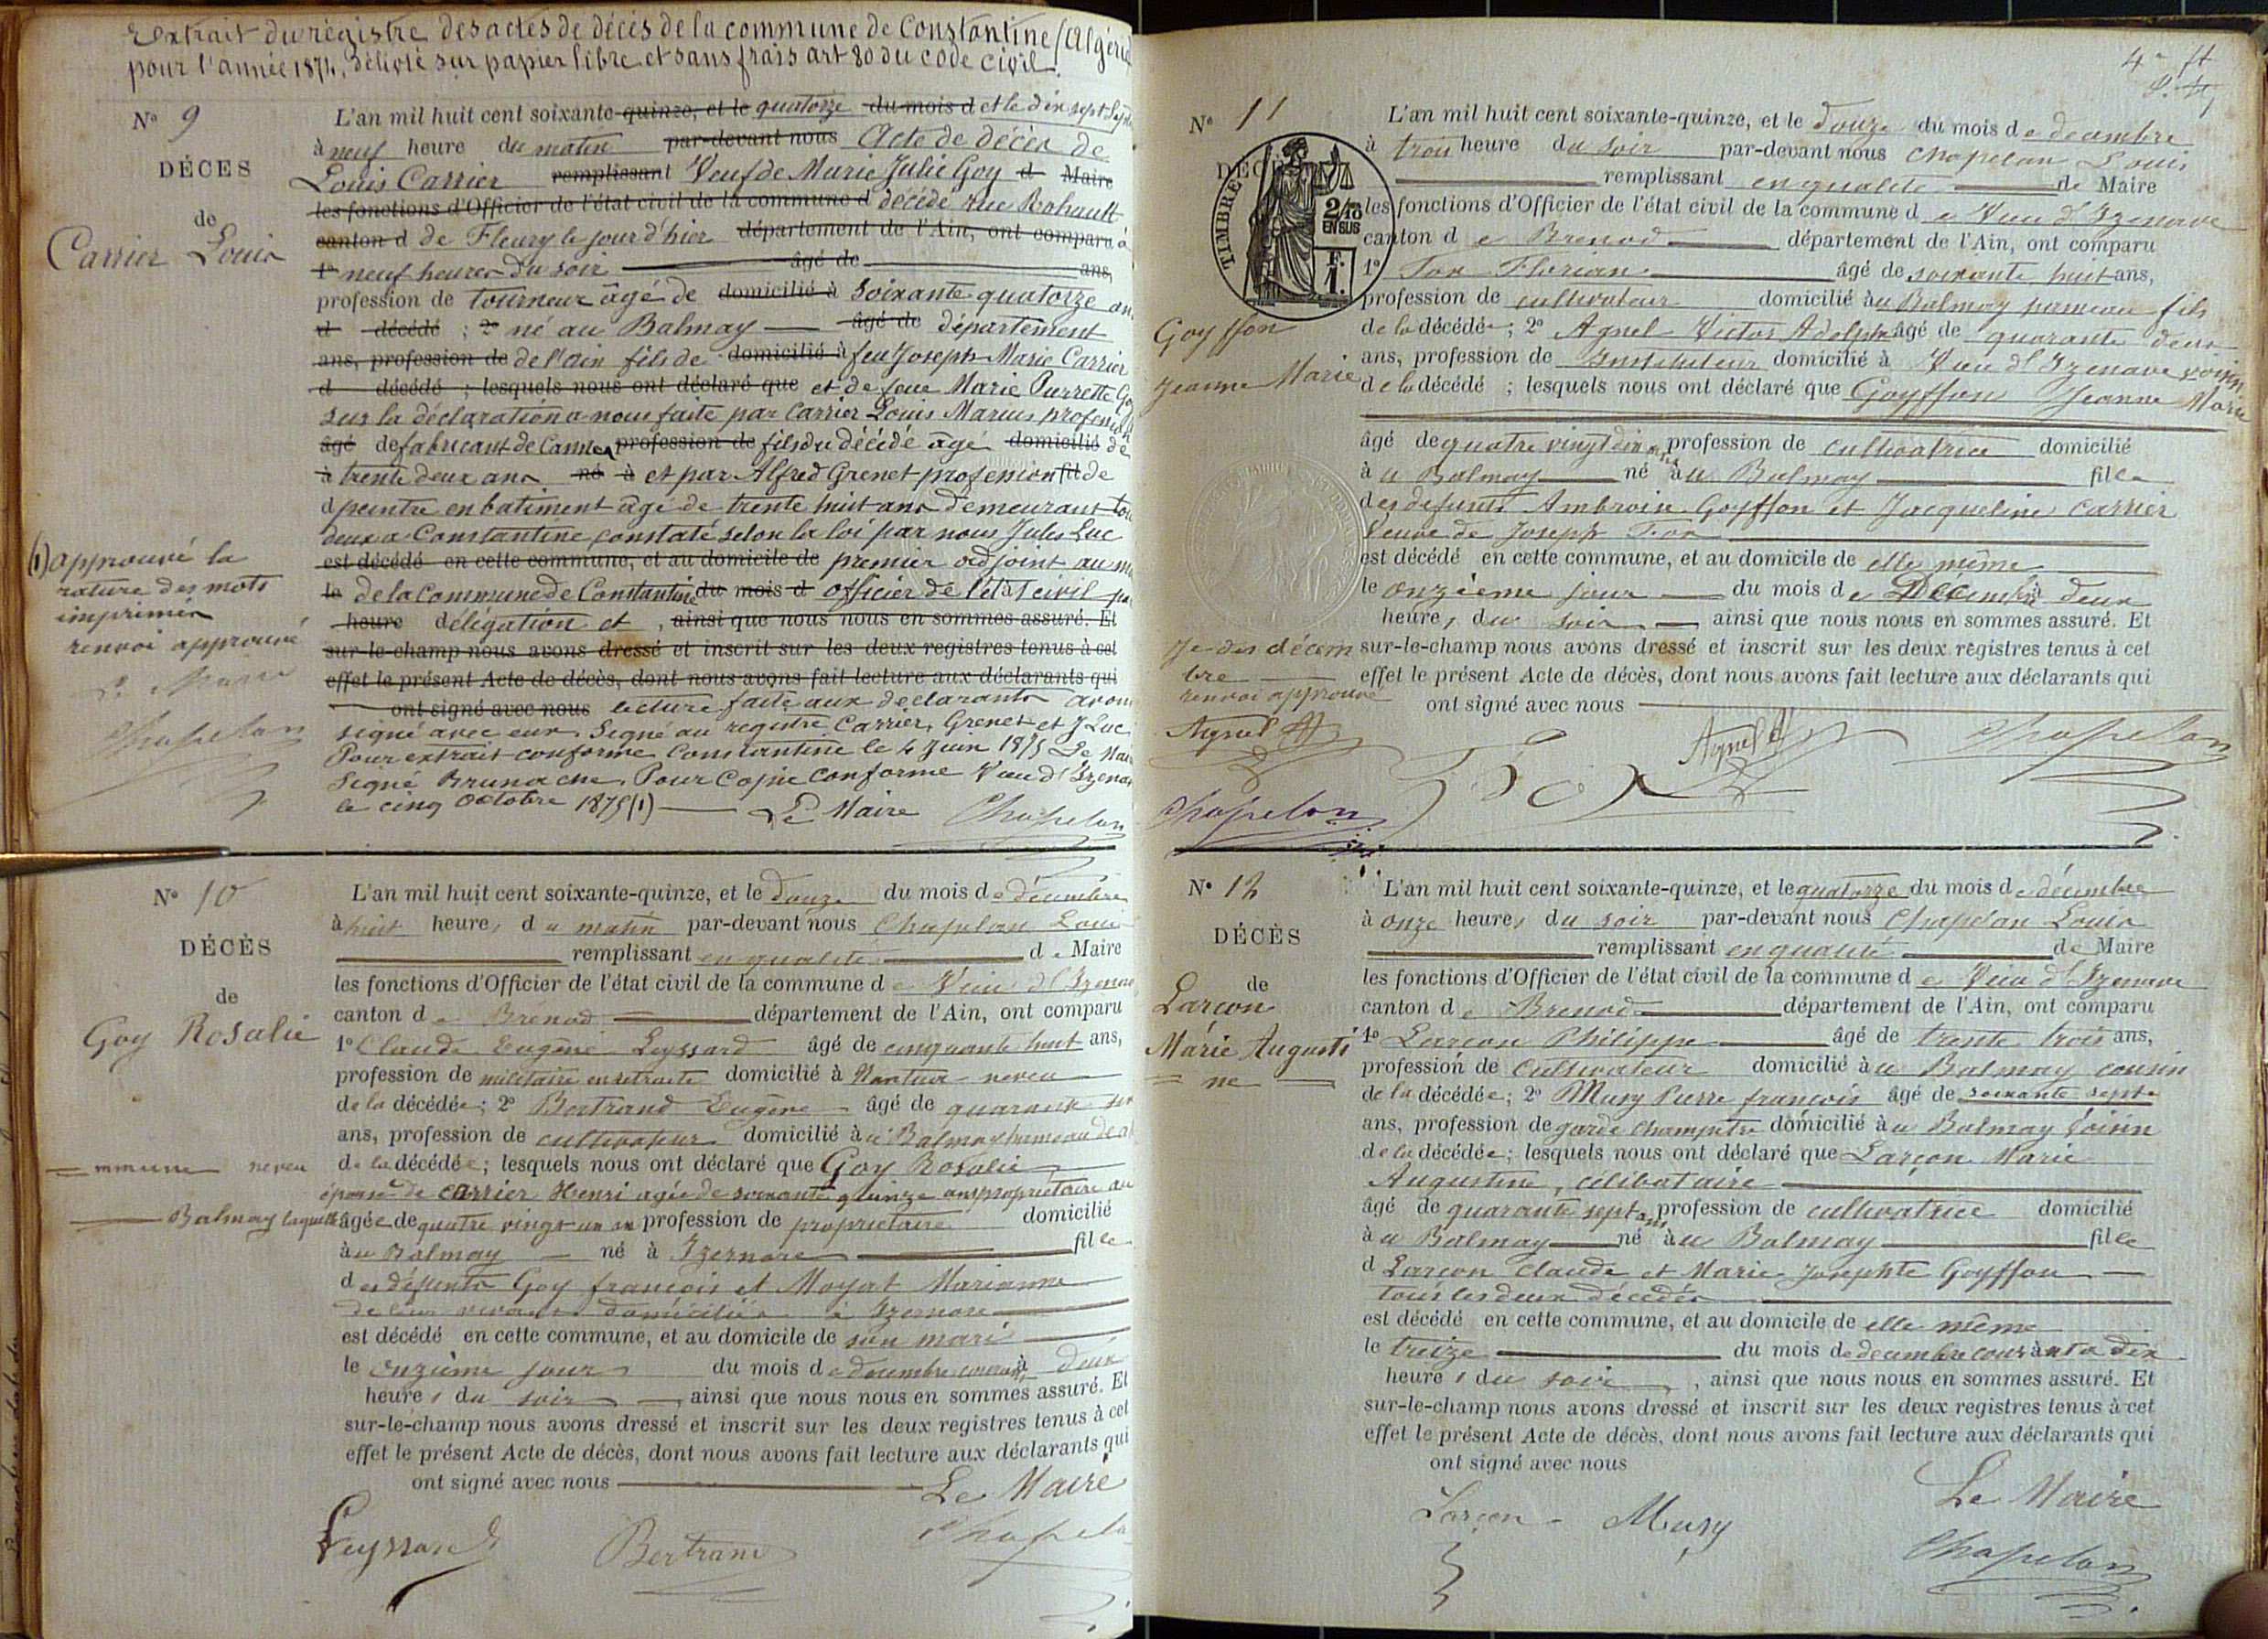 Extrait du régistre des actes de décès de la commune de Constantine (Algérie
pour l'année 1874, délivré sur papier libre et sans frais art 80 du code civil.
N° 9
DÉCES
de
Carrier Louis
L'an mil huit cent soixante-quinze, et le quatorze du mois d et le dix sept
à neuf heure du matin par-devant nous Acte de décès de
Louis Carrier remplissant Veuf de Marie Julie Goy d Maire
les fonctions d'Officier de l'état civil de la commune d décédé rue Rohault
canton d de Fleury le jour d'hier département de l'Ain, ont comparu à
1° neuf heures du soir âgé de ans,
profession de tourneur âgé de domicilié à soixante quatorze ans
d décédé ; 2° né au Balmay âgé de département
ans, profession de de l'ain fils de domicilié à feu Joseph Marie Carrier
d décédé ; lesquels nous ont déclaré que et de feue Marie Pierrette Go
sur la déclaration a nous faite par Carrier Louis Marius profession
âgé de fabricant de Cannes profession de fils du décédé âgé domicilié de
à trente deux ans né à et par Alfred Grenet profession fil de
d peintre en batiment âgé de trente huit ans demeurant tou
deux à Constantine constaté selon la loi par nous Jules Luc
est décédé en cette commune, et au domicile de premier adjoint au m
le de la Commune de Constantine du mois d officier de l'état civil pa
heure délégation et , ainsi que nous nous en sommes assuré. Et
sur-le-champ nous avons dressé et inscrit sur les deux registres tenus à cet
effet le présent Acte de décès, dont nous avons fait lecture aux déclarants qui
ont signé avec nous lecture faite aux declarants avons
signé avec eux. Signé au registre Carrier, Grenet et J Luc
Pour extrait conforme Constantine le 4 Juin 1875 Le Mair
Signé Brunache. Pour Copie Conforme Vieu d'Izenav
le cinq Octobre 1875 (1) Le Maire Chapelan
(1) approuvé la
rature des mots
imprimés
renvoi approuvé
Le Maire
Chapelan
N° 10
DÉCÈS
de
Goy Rosalie
L'an mil huit cent soixante-quinze, et le douze du mois de décembre
à huit heures du matin par-devant nous Chapelan Loui
remplissant en qualité de Maire
les fonctions d'Officier de l'état civil de la commune de Vieu d'Izenav
canton de Brénod département de l'Ain, ont comparu
1° Claude Eugène Leyssard âgé de cinquante huit ans,
profession de militaire en retraite domicilié à Nantua neveu
de la décédée ; 2° Bertrand Eugène âgé de quarante
ans, profession de cultivateur domicilié au Balmay hameau de
mmune neveu
de la décédée ; lesquels nous ont déclaré que Goy Rosalie
épouse de carrier Henri agée de soixante quinze ans propriétaire au
Balmay laquelle
âgée de quatre vingt un an profession de proprietaire domicilié
au Balmay né à Izernore fille
des défunts Goy françois et Moyat Marianne
de leur vivant domiciliés à Izernore
est décédé en cette commune, et au domicile de son mari
le onzième jour du mois de décembre courant à deux
heures du soir , ainsi que nous nous en sommes assuré. Et
sur-le-champ nous avons dressé et inscrit sur les deux registres tenus à cet
effet le présent Acte de décès, dont nous avons fait lecture aux déclarants qui
ont signé avec nous Le Maire
Leyssard Bertrand Chapela
4e ft
N° 11
DÉCÈ
TIMBRE
2/10
EN SUS
F.
1.
Goyffon
Jeanne Marie
L'an mil huit cent soixante-quinze, et le douze du mois de decembre
à trois heure du soir par-devant nous Chapelan Louis
remplissant en qualité de Maire
les fonctions d'Officier de l'état civil de la commune de Vieu d'Izenave
canton de Brenod département de l'Ain, ont comparu
1° Fox Florian âgé de soixante huit ans,
profession de cultivateur domicilié au Balmay hameau fils
de la décédée ; 2° Agnel Victor Adolphe âgé de quarante deux
ans, profession de Instituteur domicilié à Vieu d'Izenave voisin
de la décédé ; lesquels nous ont déclaré que Goyffon Jeanne Marie
âgé de quatre vingt dix ans profession de cultivatrice domicilié
au Balmay né au Balmay fille
des defunts Ambroise Goyffon et Jacqueline Carrier
Veuve de Joseph Fox
est décédé en cette commune, et au domicile de elle même
le onzième jour du mois de Décembre à deux
heures du soir ainsi que nous nous en sommes assuré. Et
sur-le-champ nous avons dressé et inscrit sur les deux registres tenus à cet
effet le présent Acte de décès, dont nous avons fait lecture aux déclarants qui
ont signé avec nous
Je dis décem
bre
renvoi approuvé
Agnel A
Chapelan
Fox Agnel A Chapelan
N° 12
DÉCÈS
de
Larçon
Marie Augusti
ne
L'an mil huit cent soixante-quinze, et le quatorze du mois de décembre
à onze heures du soir par-devant nous Chapelan Louis
remplissant en qualité de Maire
les fonctions d'Officier de l'état civil de la commune de Vieu d'Izenave
canton de Brenod département de l'Ain, ont comparu
1° Larçon Philippe âgé de trente trois ans,
profession de Cultivateur domicilié au Balmay cousin
de la décédée ; 2° Musy Pierre françois âgé de soixante sept
ans, profession de garde champetre domicilié au Balmay voisin
de la décédée ; lesquels nous ont déclaré que Larçon Marie
Augustine, célibataire
âgé de quarante sept ans profession de cultivatrice domicilié
au Balmay né au Balmay fille
d Larçon Claude et Marie Josephte Goyffon
tous les deux décédés
est décédé en cette commune, et au domicile de elle même
le treize du mois de decembre courant à dix
heures du soir , ainsi que nous nous en sommes assuré. Et
sur-le-champ nous avons dressé et inscrit sur les deux registres tenus à cet
effet le présent Acte de décès, dont nous avons fait lecture aux déclarants qui
ont signé avec nous
Le Maire
Larçon Musy Chapelan